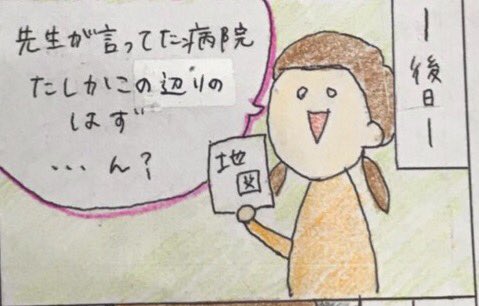 ー後日ー
先生が言ってた病院
たしかこの辺りの
はず
…ん？
地図